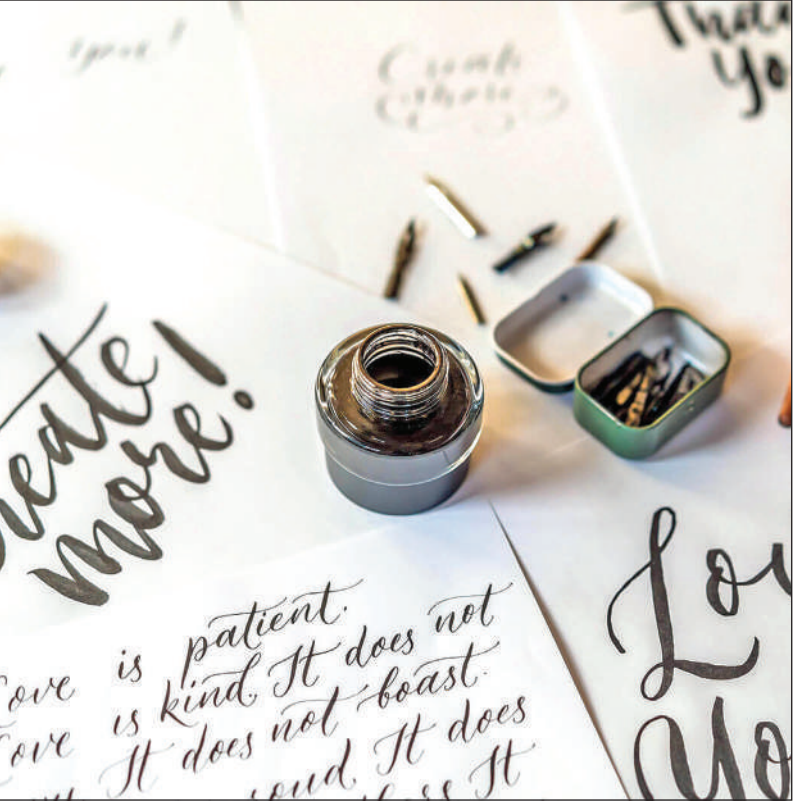 Than
Yo
reate
more!
ove is patient.
ove is kind. It does not
It does not boast.
oud. It does
It
Lov
Yo